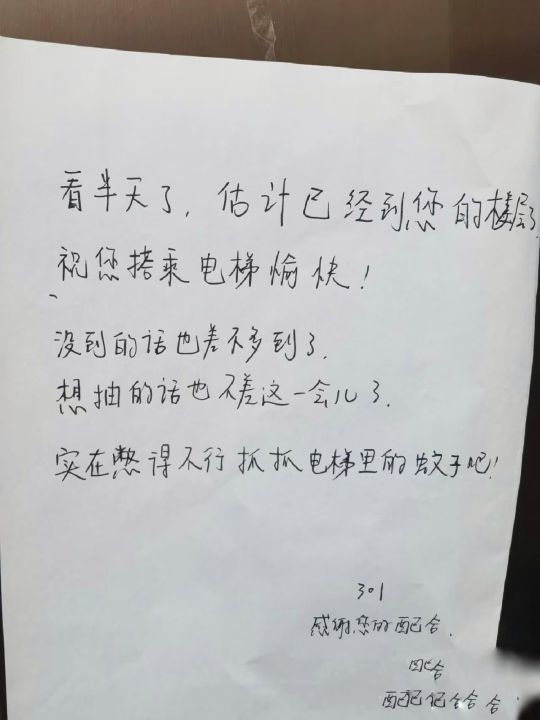 看半天了，估计已经到您的楼层了，
祝您搭乘电梯愉快！
没到的话也差不多到了，
想抽的话也不差这一会儿了，
实在憋得不行抓抓电梯里的蚊子吧！
301
感谢您的配合，
配合